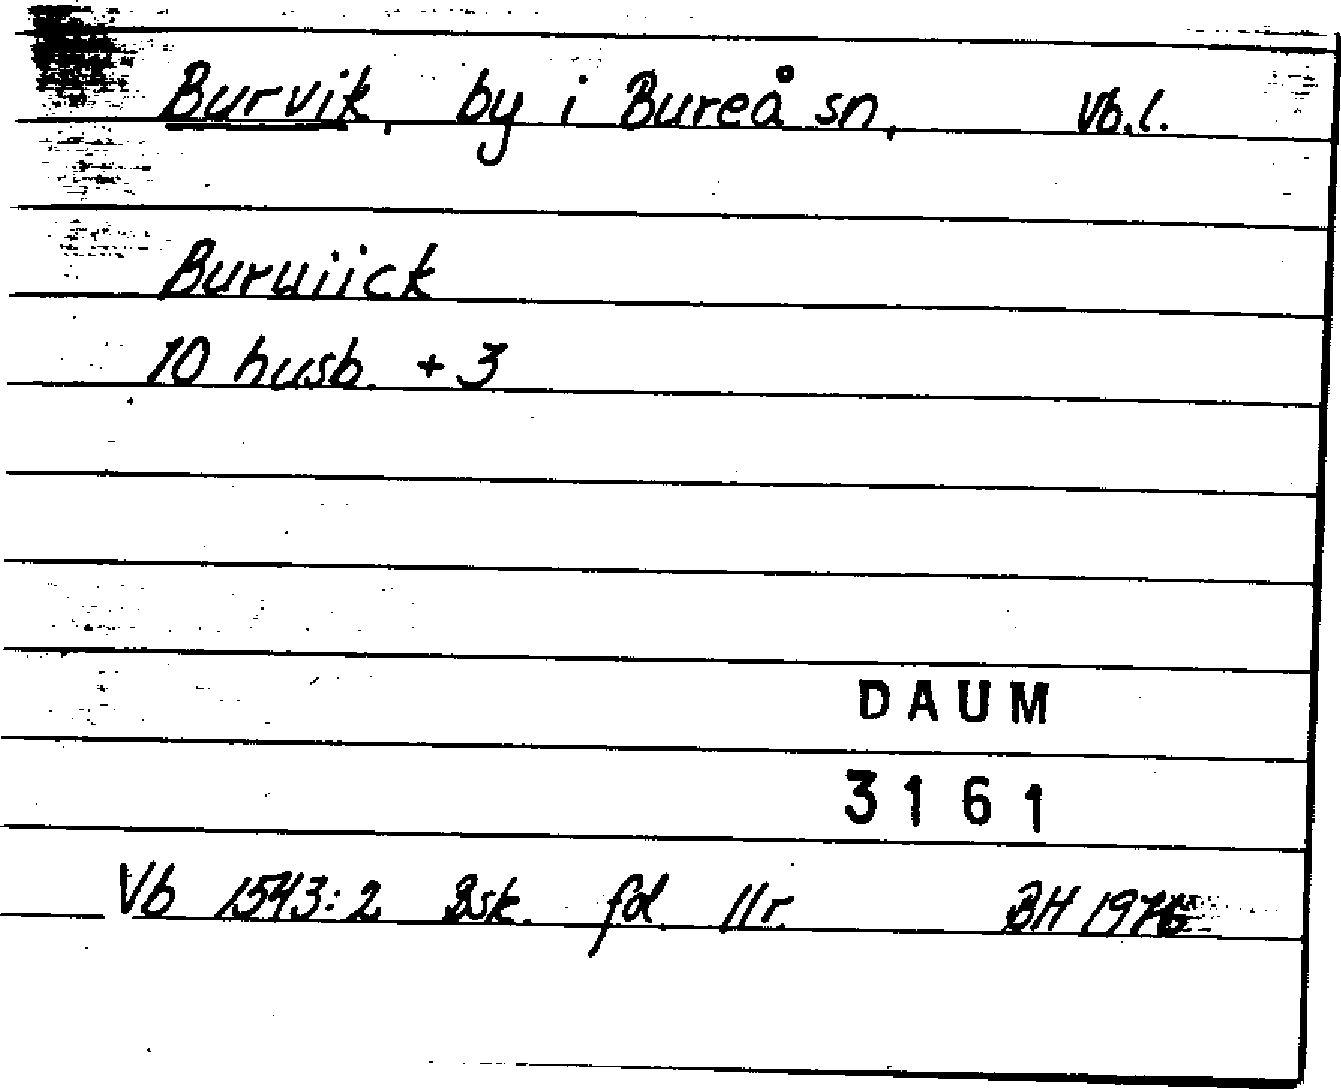 Burvik, by i Bureå sn, Vb.l.
Buruiick
10 husb. + 3
DAUM
3161
Vb 1543:2 Bsk. fol 11r. BH 1976